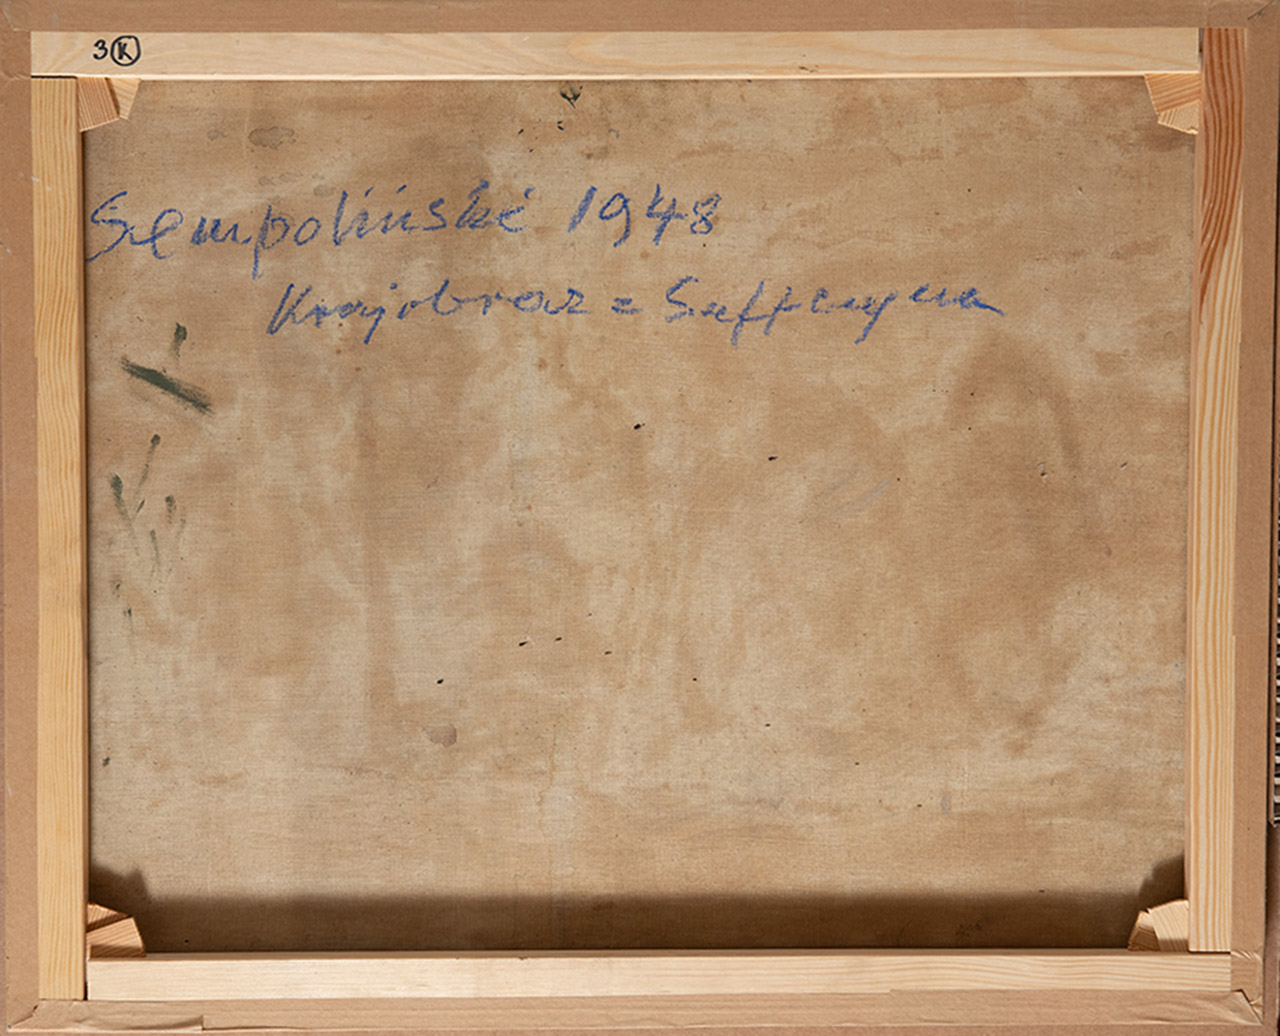 3 K
Sempoliński 1948
Krajobraz =